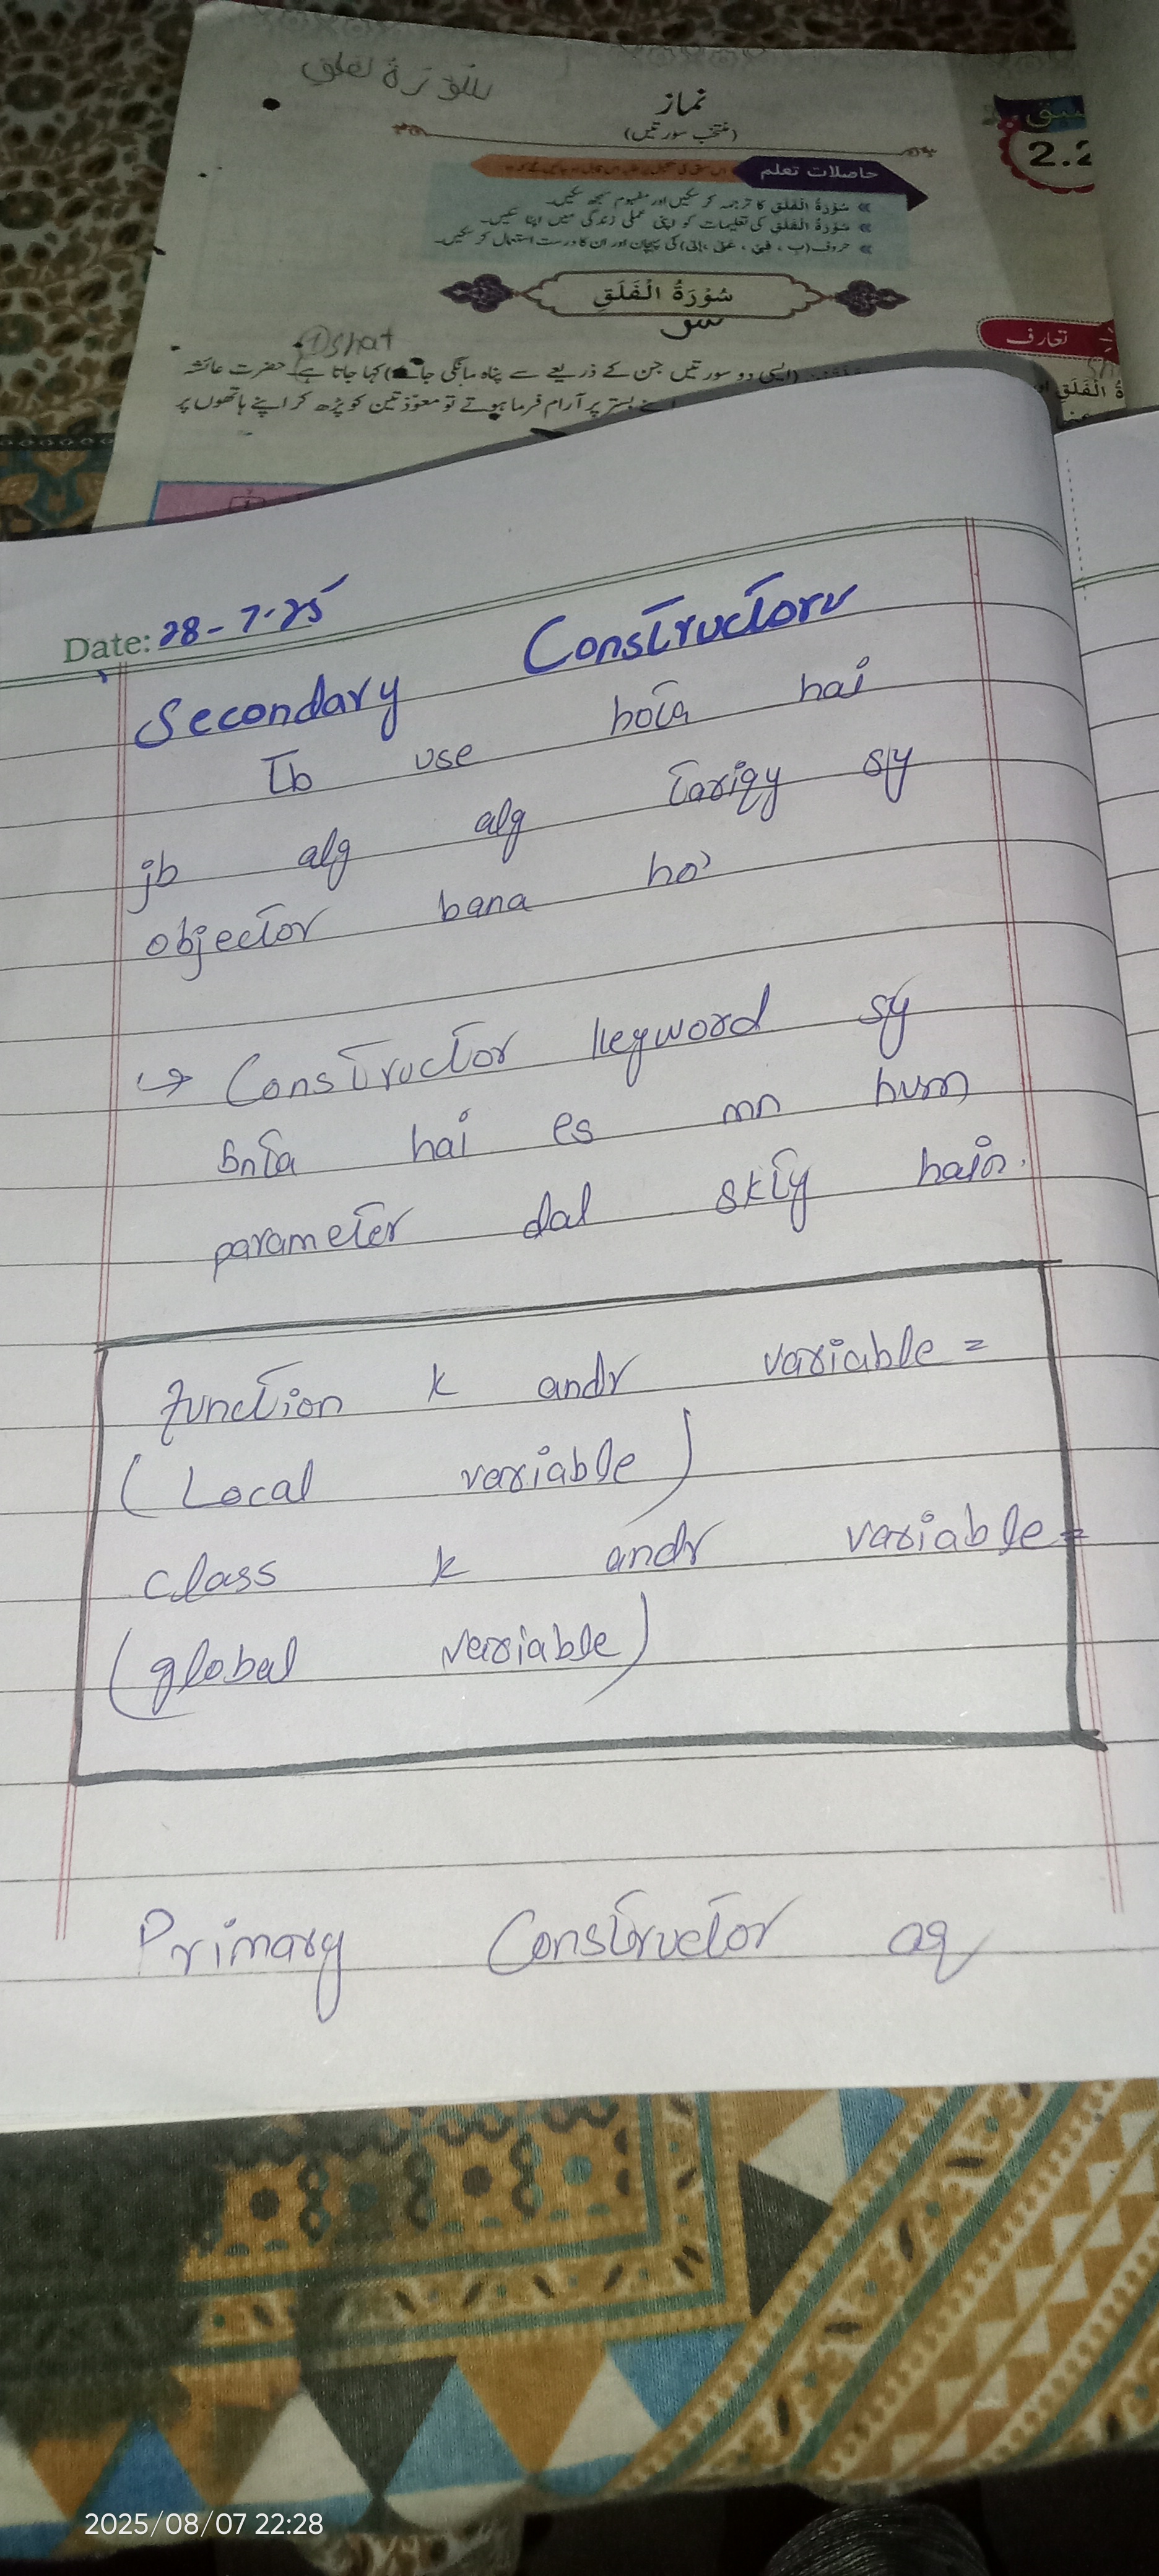 سورة فلق
نماز
(منتخب سورتیں)
سبق
2.2
حاصلات تعلم
سُوْرَۃُ الْفَلَقِ کا ترجمہ کر سکیں اور مفہوم سمجھ سکیں۔
سُوْرَۃُ الْفَلَقِ کی تعلیمات کو اپنی عملی زندگی میں اپنا سکیں۔
حروف (ب ، فِیْ ، عَنْ ، اِلٰی) کی پہچان اور ان کا درست استعمال کر سکیں۔
سُوْرَۃُ الْفَلَقِ
تعارف
(ایسی دو سورتیں جن کے ذریعے سے پناہ مانگی جائے) کہا جاتا ہے۔ حضرت عائشہ
بستر پر آرام فرما ہوتے تو معوّذتین کو پڑھ کر اپنے ہاتھوں پر
Date: 28-7-25
Secondary Constructorv
Tb use hota hai
jb alg alg tariqy sy
objector bana ho
↪ Constructor keyword sy
bnta hai es mn hum
parameter dal skty hain.
function k andr variable =
(Local variable)
class k andr variable =
(global variable)
Primary Constructor aq
2025/08/07 22:28